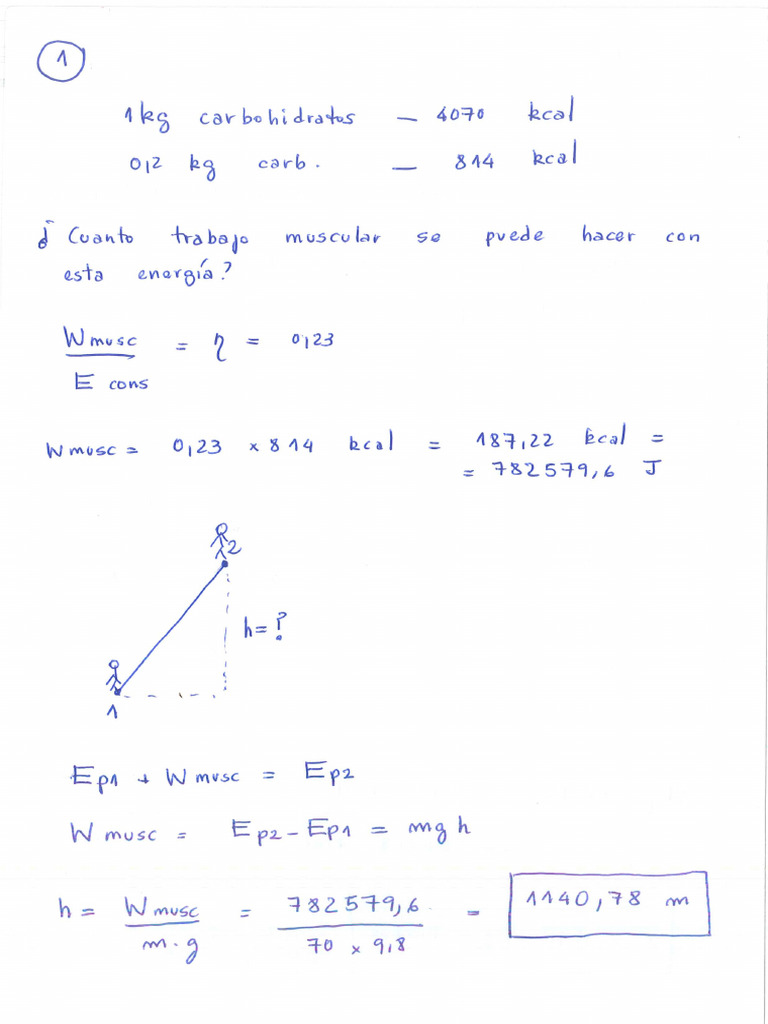 1
1kg carbohidratos — 4070 kcal
0,2 kg carb. — 814 kcal
¿ Cuanto trabajo muscular se puede hacer con
esta energía?
W musc / E cons = η = 0,23
W musc = 0,23 x 814 kcal = 187,22 kcal =
= 782579,6 J
2
h = ?
1
Ep1 + W musc = Ep2
W musc = Ep2 - Ep1 = mgh
h = W musc / m·g = 782579,6 / 70 x 9,8 = 1140,78 m